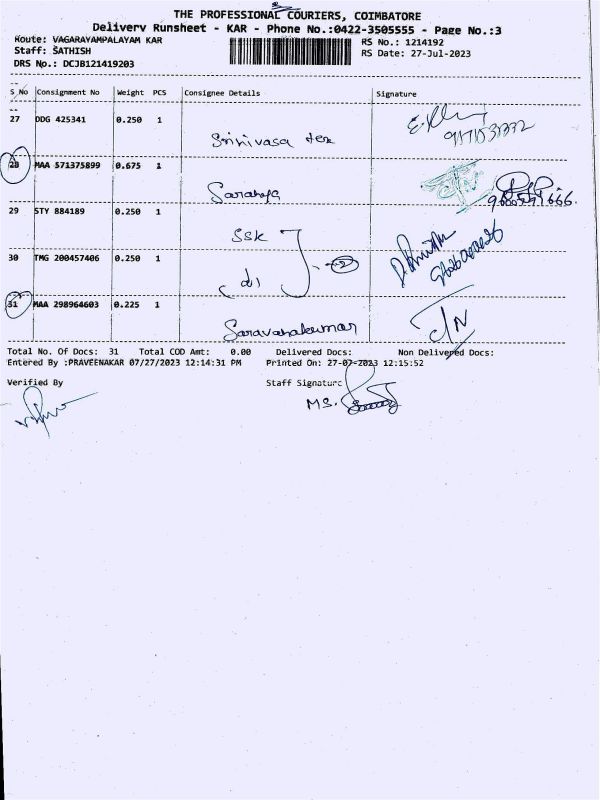 THE PROFESSIONAL COURIERS, COIMBATORE
Delivery Runsheet - KAR - Phone No.:0422-3505555 - Page No.:3
Route: VAGARAYAMPALAYAM KAR
RS No.: 1214192
Staff: SATHISH
RS Date: 27-Jul-2023
DRS No.: DCJB121419203
S No Consignment No Weight PCS Consignee Details Signature
27 DDG 425341 0.250 1
Srinivasa tex
28 MAA 571375899 0.675 1
Saranya
29 STY 884189 0.250 1
SSK
30 TMG 200457406 0.250 1
di
2
31 MAA 298964603 0.225 1
Saravanakumar
Total No. Of Docs: 31 Total COD Amt: 0.00 Delivered Docs: Non Delivered Docs:
Entered By :PRAVEENAKAR 07/27/2023 12:14:31 PM Printed On: 27-07-2023 12:15:52
Verified By Staff Signature
MS.